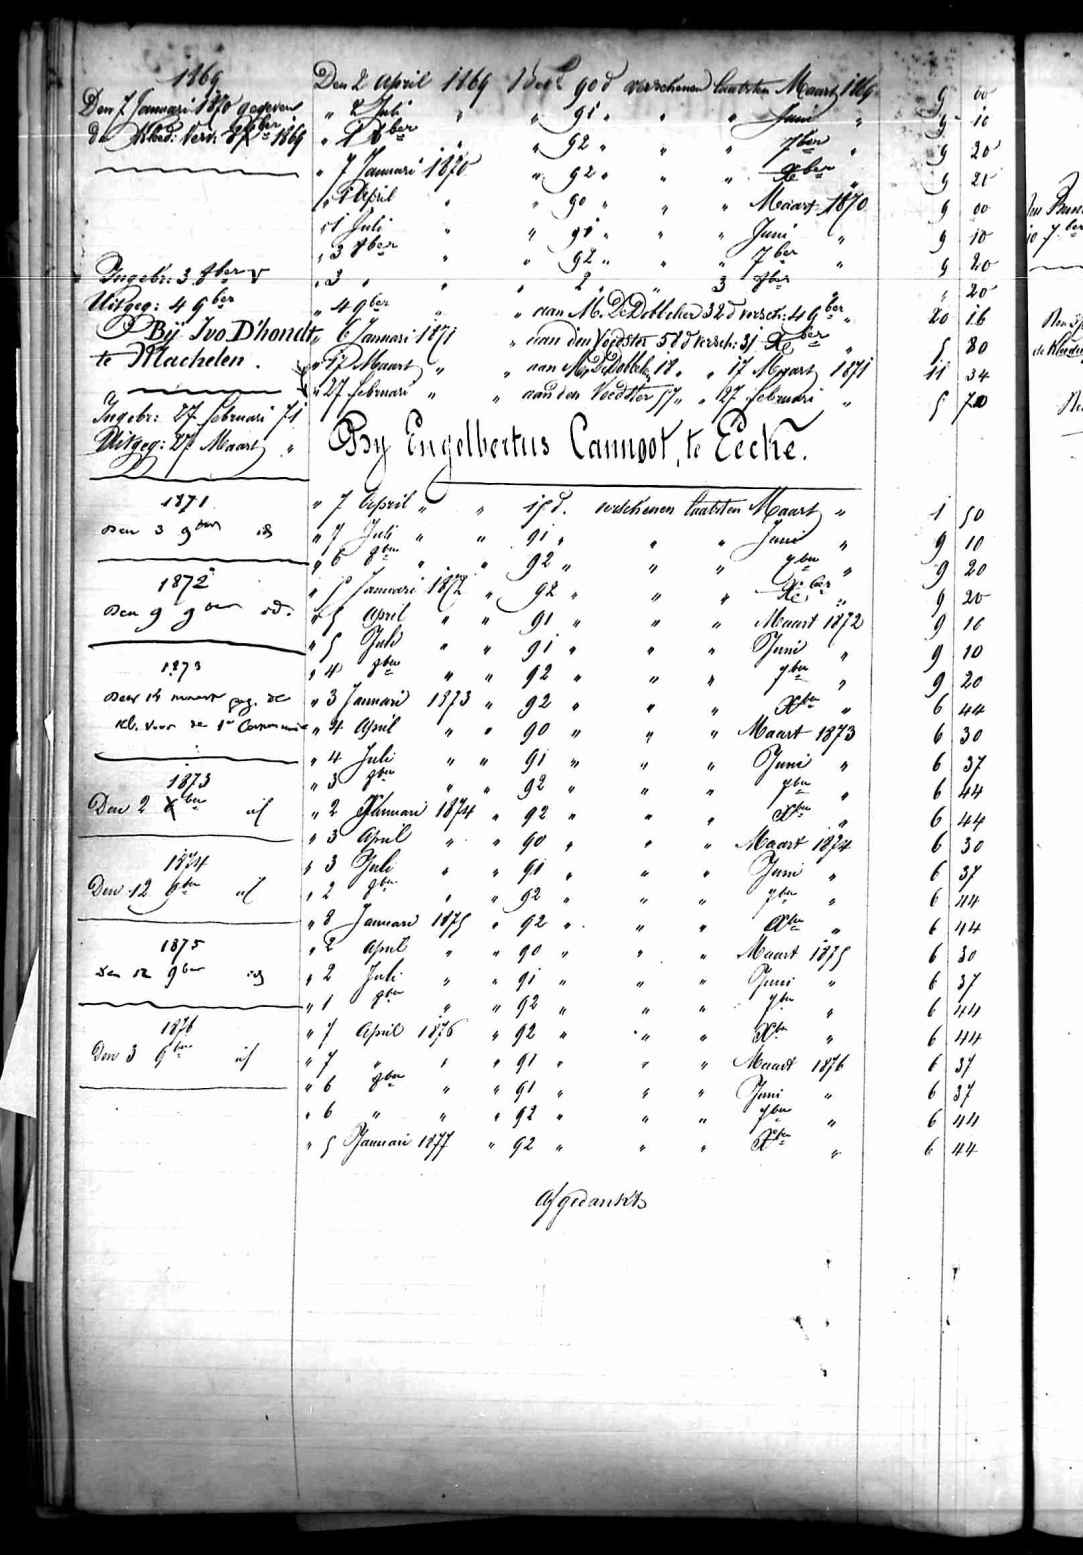 1869
Den 7 Januari 1870 gegeven
de Kleed: Vers: 8ber 1869
Ingebr: 3 8ber
Uitgeg: 4 9ber
Bij Ivo D'hondt
te Machelen.
Ingebr: 27 februari 71
Uitgeg: 27 Maart "
1871
Den 3 9ber id
1872
Den 9 9ber id.
1873
Den maart geg. de
kl. voor de 1e Communie
1873
Den 2 Xber id
1874
Den 12 9ber id
1875
Den 12 9ber id
1876
Den 3 9ber id
Den 2 April 1869 Bet 90 d verschenen laatsten Maart 1869 9 00
" 2 Juli " " 91 " " " Juni " 9 10
" 1 8ber " " 92 " " " 7ber " 9 20
" 7 Januari 1870 " 92 " " " Xber " 9 20
" 1 April " " 90 " " " Maart 1870 9 00
" 1 Juli " " 91 " " " Juni " 9 10
" 3 8ber " " 92 " " " 7ber " 9 20
" 3 " " " 2 " " 3 8ber " " 20
" 4 9ber " " aan M. De Dobbeler 32 d versch: 4 9ber " 20 16
" 6 Januari 1871 " aan den Voedster 58 d versch: 31 Xber " 5 80
" 17 Maart " " aan M. De Dobbel. 18 " " 17 Maart 1871 11 34
" 27 februari " " aan den Voedster 57 " " 27 februari " 5 70
By Engelbertus Cannoot, te Eecke.
" 7 April " " 15 d. verschenen laatsten Maart " 1 50
" 7 Juli " " 91 " " " Juni " 9 10
" 6 8ber " " 92 " " " 7ber " 9 20
" 5 Januari 1872 " 92 " " " Xber " 9 20
" 5 April " " 91 " " " Maart 1872 9 10
" 5 Juli " " 91 " " " Juni " 9 10
" 4 8ber " " 92 " " " 7ber " 9 20
" 3 Januari 1873 " 92 " " " Xber " 6 44
" 4 April " " 90 " " " Maart 1873 6 30
" 4 Juli " " 91 " " " Juni " 6 37
" 3 8ber " " 92 " " " 7ber " 6 44
" 2 Januari 1874 " 92 " " " Xber " 6 44
" 3 April " " 90 " " " Maart 1874 6 30
" 3 Juli " " 91 " " " Juni " 6 37
" 2 8ber " " 92 " " " 7ber " 6 44
" 8 Januari 1875 " 92 " " " Xber " 6 44
" 2 April " " 90 " " " Maart 1875 6 30
" 2 Juli " " 91 " " " Juni " 6 37
" 1 8ber " " 92 " " " 7ber " 6 44
" 7 April 1876 " 92 " " " Xber " 6 44
" 7 " " " 91 " " " Maart 1876 6 37
" 6 8ber " " 91 " " " Juni " 6 37
" 6 " " " 92 " " " 7ber " 6 44
" 5 Januari 1877 " 92 " " " Xber " 6 44
Afgedankt